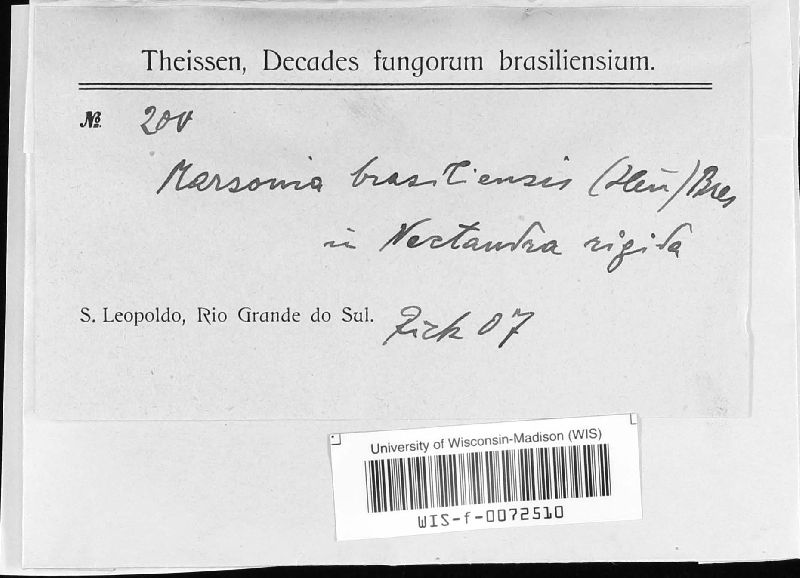 Theissen, Decades fungorum brasiliensium.
№ 200
Marsonia brasiliensis (Hen) Bres
in Nectandra rigida
S. Leopoldo, Rio Grande do Sul. Rick 07
University of Wisconsin-Madison (WIS)
WIS-f-0072510